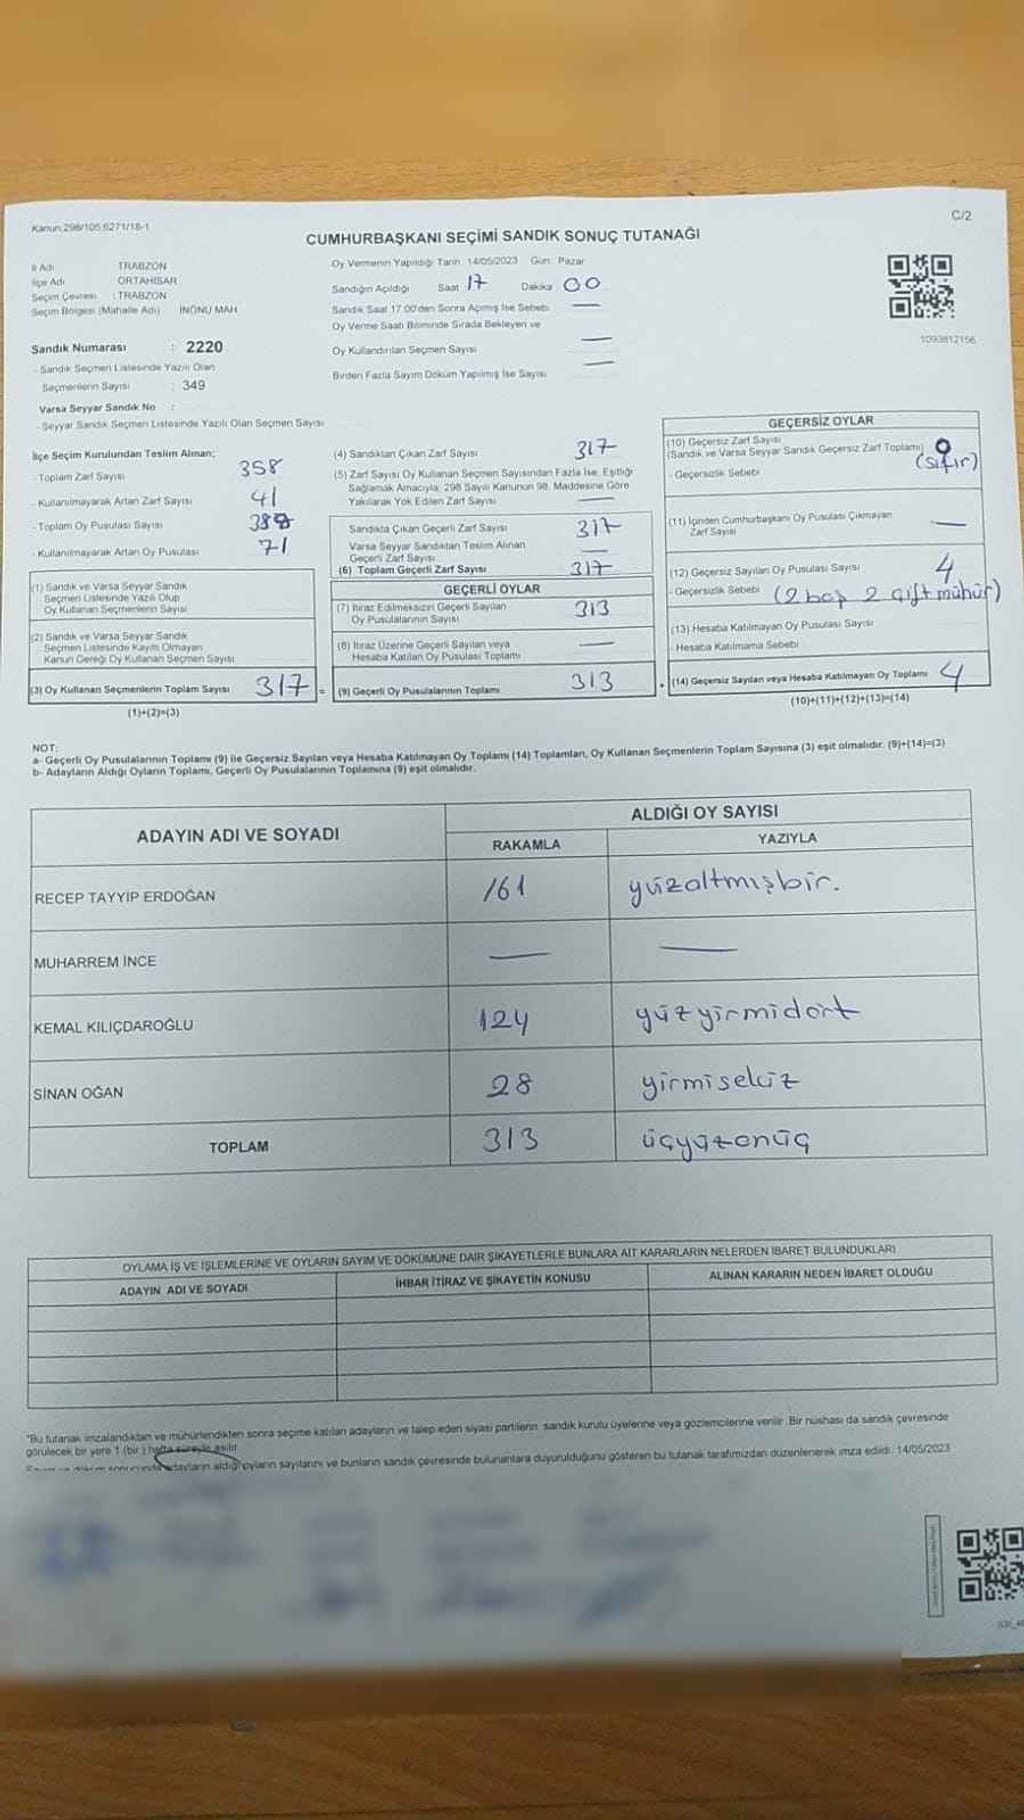 Kanun:298/105,6271/18-1
C/2
CUMHURBAŞKANI SEÇİMİ SANDIK SONUÇ TUTANAĞI
İl Adı TRABZON
İlçe Adı ORTAHİSAR
Seçim Çevresi : TRABZON
Seçim Bölgesi (Mahalle Adı) İNÖNÜ MAH
Sandık Numarası : 2220
- Sandık Seçmen Listesinde Yazılı Olan
Seçmenlerin Sayısı : 349
Varsa Seyyar Sandık No :
- Seyyar Sandık Seçmen Listesinde Yazılı Olan Seçmen Sayısı
Oy Vermenin Yapıldığı Tarih : 14/05/2023 Gün : Pazar
Sandığın Açıldığı Saat 17 Dakika 00
Sandık Saat 17:00'den Sonra Açılmış İse Sebebi —
Oy Verme Saati Bitiminde Sırada Bekleyen ve
Oy Kullandırılan Seçmen Sayısı —
Birden Fazla Sayım Döküm Yapılmış İse Sayısı —
1093812156
İlçe Seçim Kurulundan Teslim Alınan;
- Toplam Zarf Sayısı 358
- Kullanılmayarak Artan Zarf Sayısı 41
- Toplam Oy Pusulası Sayısı
- Kullanılmayarak Artan Oy Pusulası 71
(1) Sandık ve Varsa Seyyar Sandık
Seçmen Listesinde Yazılı Olup
Oy Kullanan Seçmenlerin Sayısı
(2) Sandık ve Varsa Seyyar Sandık
Seçmen Listesinde Kayıtlı Olmayan
Kanun Gereği Oy Kullanan Seçmen Sayısı
(3) Oy Kullanan Seçmenlerin Toplam Sayısı 317 =
(1)+(2)=(3)
(4) Sandıktan Çıkan Zarf Sayısı 317
(5) Zarf Sayısı Oy Kullanan Seçmen Sayısından Fazla İse, Eşitliği
Sağlamak Amacıyla, 298 Sayılı Kanunun 98. Maddesine Göre
Yakılarak Yok Edilen Zarf Sayısı —
Sandıkta Çıkan Geçerli Zarf Sayısı 317
Varsa Seyyar Sandıktan Teslim Alınan
Geçerli Zarf Sayısı —
(6) Toplam Geçerli Zarf Sayısı 317
GEÇERLİ OYLAR
(7) İtiraz Edilmeksizin Geçerli Sayılan
Oy Pusulalarının Sayısı 313
(8) İtiraz Üzerine Geçerli Sayılan veya
Hesaba Katılan Oy Pusulası Toplamı —
(9) Geçerli Oy Pusulalarının Toplamı 313
GEÇERSİZ OYLAR
(10) Geçersiz Zarf Sayısı
(Sandık ve Varsa Seyyar Sandık Geçersiz Zarf Toplamı) 0
- Geçersizlik Sebebi (sıfır)
(11) İçinden Cumhurbaşkanı Oy Pusulası Çıkmayan
Zarf Sayısı —
(12) Geçersiz Sayılan Oy Pusulası Sayısı 4
- Geçersizlik Sebebi (2 boş 2 çift mühür)
(13) Hesaba Katılmayan Oy Pusulası Sayısı
- Hesaba Katılmama Sebebi
+ (14) Geçersiz Sayılan veya Hesaba Katılmayan Oy Toplamı 4
(10)+(11)+(12)+(13)=(14)
NOT:
a- Geçerli Oy Pusulalarının Toplamı (9) ile Geçersiz Sayılan veya Hesaba Katılmayan Oy Toplamı (14) Toplamları, Oy Kullanan Seçmenlerin Toplam Sayısına (3) eşit olmalıdır. (9)+(14)=(3)
b- Adayların Aldığı Oyların Toplamı, Geçerli Oy Pusulalarının Toplamına (9) eşit olmalıdır.
ADAYIN ADI VE SOYADI
ALDIĞI OY SAYISI
RAKAMLA YAZIYLA
RECEP TAYYİP ERDOĞAN 161 yüzaltmışbir.
MUHARREM İNCE — —
KEMAL KILIÇDAROĞLU 124 yüzyirmidört
SİNAN OĞAN 28 yirmisekiz
TOPLAM 313 üçyüzonüç
OYLAMA İŞ VE İŞLEMLERİNE VE OYLARIN SAYIM VE DÖKÜMÜNE DAİR ŞİKAYETLERLE BUNLARA AİT KARARLARIN NELERDEN İBARET BULUNDUKLARI
ADAYIN ADI VE SOYADI İHBAR İTİRAZ VE ŞİKAYETİN KONUSU ALINAN KARARIN NEDEN İBARET OLDUĞU
*Bu tutanak imzalandıktan ve mühürlendikten sonra seçime katılan adayların ve talep eden siyasi partilerin sandık kurulu üyelerine veya gözlemcilerine verilir. Bir nüshası da sandık çevresinde
görülecek bir yere 1 (bir) hafta süreyle asılır.
adayların aldığı oyların sayılarını ve bunların sandık çevresinde bulunanlara duyurulduğunu gösteren bu tutanak tarafımızdan düzenlenerek imza edildi. 14/05/2023